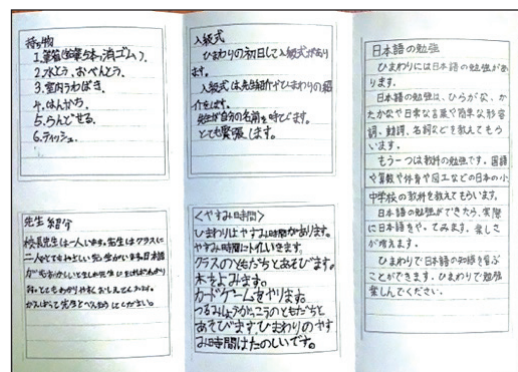 持ち物
1.筆箱(鉛筆5本、消ゴム)、
2.水とう、おべんとう、
3.室内うわばき、
4.はんかち、
5.らんどせる、
6.ティッシュ、
先生紹介
校長先生は一人います。先生はクラスに
入級式
ひまわりの初日して入級式があり
ます。
入級式は先生紹介やひまわりの紹
介をします。
先生が自分の名前を呼びます。
とても緊張します。
<やすみ時間>
ひまわりはやすみ時間があります。
やすみ時間にトイレいきます。
クラスのともだちとあそびます。
本をよみます。
カードゲームをやります。
つるみしょうがっこうのともだちと
あそびます。ひまわりのやす
み時間はたのしいです。
日本語の勉強
ひまわりには日本語の勉強があ
ります。
日本語の勉強は、ひらがな、か
たかなや日常な言葉や簡単な形容
詞、動詞、名詞などを教えてもら
います。
もう一つは教科の勉強です。国語
や算数や体育や図工などの日本の小
中学校の教科を教えてもらいます。
日本語の勉強ができたら、実際
に日本語をやってみます。楽しさ
が増えます。
ひまわりで日本語の知識を学ぶ
ことができます。ひまわりで勉強
楽しんでください。